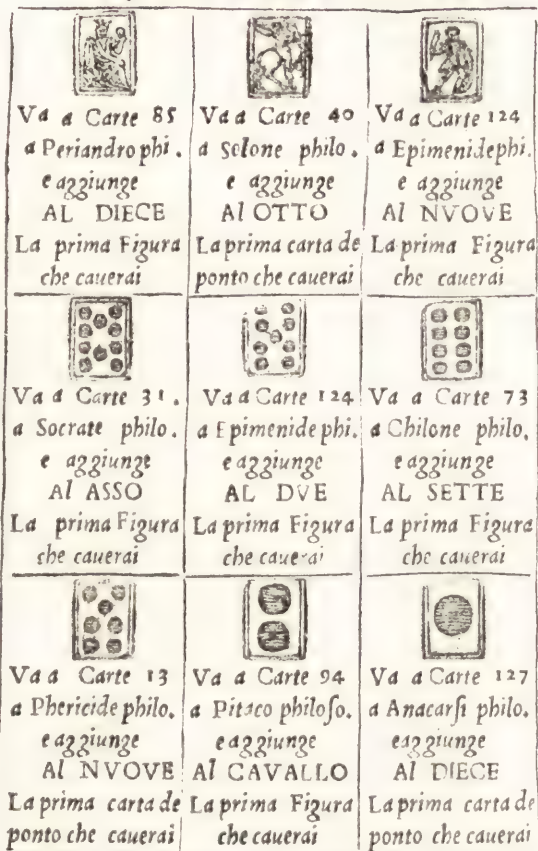 Va a Carte 85
a Periandro phi.
e aggiunge
AL DIECE
La prima Figura
che cauerai
Va a Carte 40
a Solone philo.
e aggiunge
Al OTTO
La prima carta de
ponto che cauerai
Va a Carte 124
a Epimenide phi.
e aggiunge
Al NVOVE
La prima Figura
che cauerai
Va a Carte 31.
a Socrate philo.
e aggiunge
Al ASSO
La prima Figura
che cauerai
Va a Carte 124
a Epimenide phi.
e aggiunge
AL DVE
La prima Figura
che cauerai
Va a Carte 73
a Chilone philo,
e aggiunge
AL SETTE
La prima Figura
che cauerai
Va a Carte 13
a Phericide philo.
e aggiunge
Al NVOVE
La prima carta de
ponto che cauerai
Va a Carte 94
a Pitaco philoſo.
e aggiunge
Al CAVALLO
La prima Figura
che cauerai
Va a Carte 127
a Anacarſi philo.
e aggiunge
Al DIECE
La prima carta de
ponto che cauerai